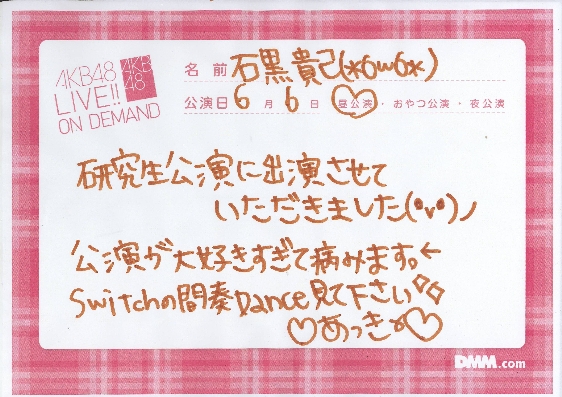 AKB48
LIVE!!
ON DEMAND
AKB
48
名前 石黒貴己(*6ω6*)
公演日 6月6日 昼公演・おやつ公演・夜公演
研究生公演に出演させて
いただきました(•v•)ノ
公演が大好きすぎて病みます。←
Switchの間奏Dance見て下さい
♡あっきー♡
DMM.com